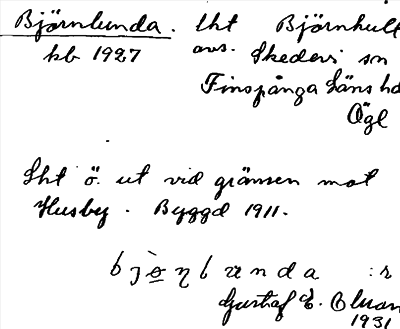 Björnlunda. lht Björnhult
kb 1927 avs. Skedevi sn
Finspånga läns hd
Ögl
Lht ö. ut vid gränsen mot
Husby. Byggd 1911.
Gustaf E.
1931